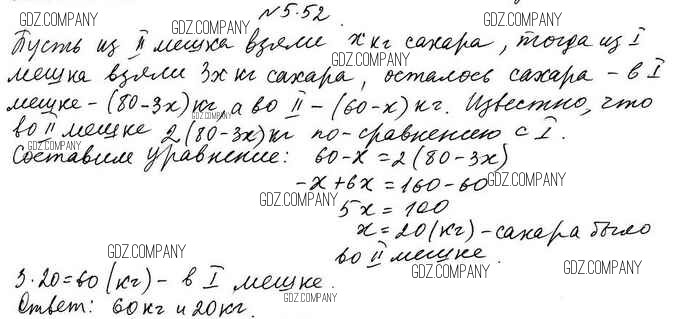 №5.52.
Пусть из II мешка взяли x кг сахара, тогда из I
мешка взяли 3x кг сахара, осталось сахара - в I
мешке - (80-3x) кг, а во II - (60-x) кг. Известно, что
во II мешке 2(80-3x) кг по-сравнению с I.
Составим уравнение: 60-x=2(80-3x)
-x+6x=160-60
5x=100
x=20(кг)-сахара было
во II мешке.
3·20=60(кг)-в I мешке.
Ответ: 60кг и 20кг.
GDZ.COMPANY
GDZ.COMPANY
GDZ.COMPANY
GDZ.COMPANY
GDZ.COMPANY
GDZ.COMPANY
GDZ.COMPANY
GDZ.COMPANY
GDZ.COMPANY
GDZ.COMPANY
GDZ.COMPANY
GDZ.COMPANY
GDZ.COMPANY